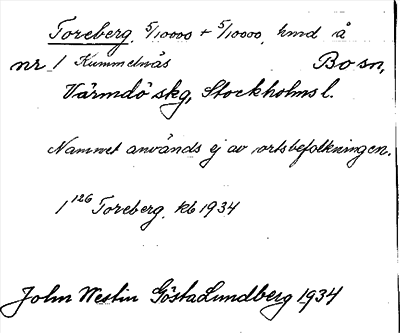 Toreberg. 5/10000 + 5/10000, hmd å
nr 1 Kummelnäs Bo sn,
Värmdö skg, Stockholms l.
Namnet används ej av ortsbefolkningen.
1 126 Toreberg. kb 1934
John Westin Gösta Lundberg 1934